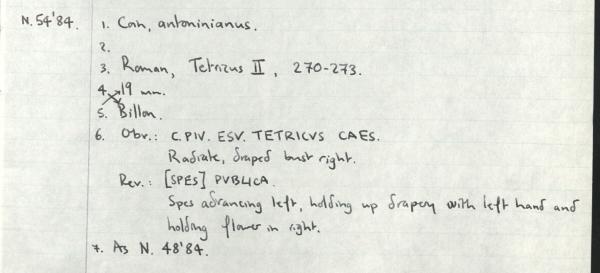 N. 54'84. 1. Coin, antoninianus.
2.
3. Roman, Tetricus II, 270-273.
4. 19 mm.
5. Billon.
6. Obv.: C. PIV. ESV. TETRICVS CAES.
Radiate, draped bust right.
Rev.: [SPES] PVBLICA.
Spes advancing left, holding up drapery with left hand and
holding flower in right.
7. As N. 48'84.